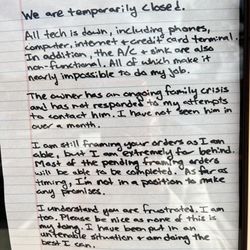 We are temporarily closed.
All tech is down, including phones,
computer, internet + credit card terminal.
In addition, the A/C + sink are also
non-functional. All of which make it
nearly impossible to do my job.
The owner has an ongoing family crisis
and has not responded to my attempts
to contact him. I have not seen him in
over a month.
I am still framing your orders as I am
able, but I am extremely far behind.
Most of the pending framing orders
will be able to be completed. As far as
timing, I'm not in a position to make
any promises.
I understand you are frustrated. I am
too. Please be nice as none of this is
my doing. I have been put in an
untenable situation + am doing the
best I can.